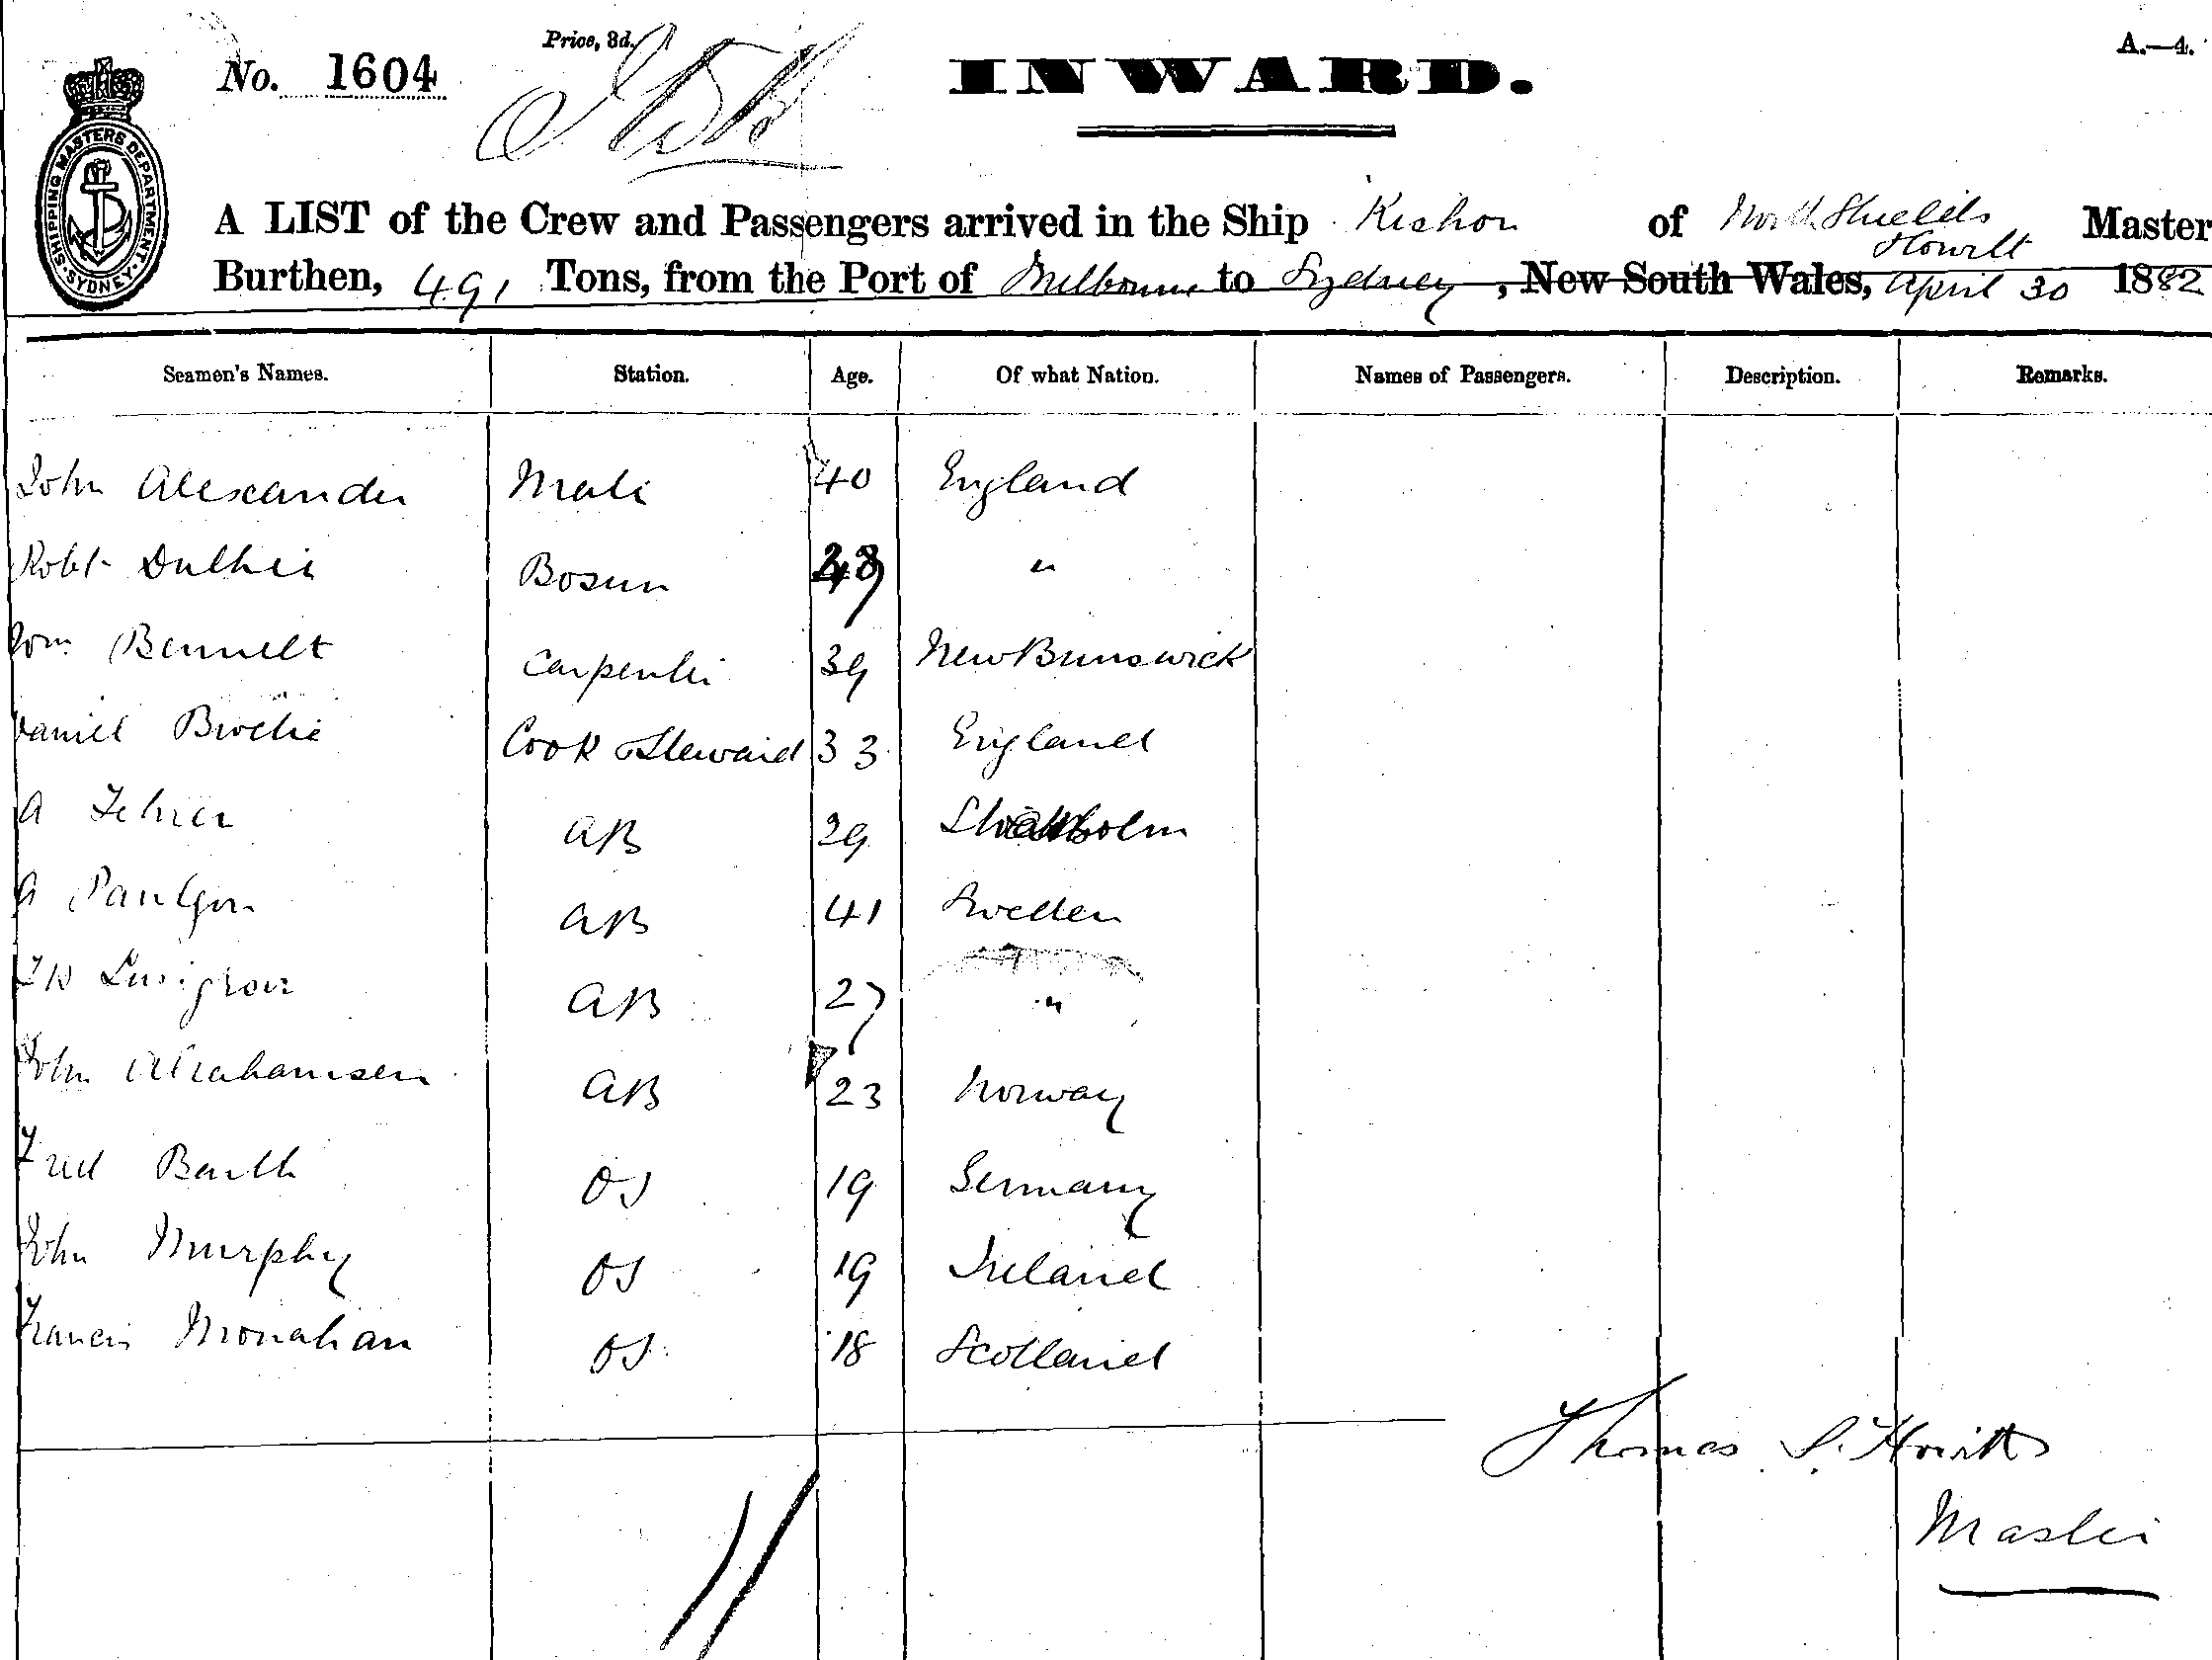 Price, 3d.
A.—4.
No. 1604
INWARD.
SHIPPING MASTERS DEPARTMENT. SYDNEY.
A LIST of the Crew and Passengers arrived in the Ship Kishon of North Shields Howitt Master
Burthen, 491 Tons, from the Port of Melbourne to Sydney, New South Wales, April 30 1882
Seamen's Names. Station. Age. Of what Nation. Names of Passengers. Description. Remarks.
John Alexander Mate 40 England
Robt Duthie Bosun "
Bennett Carpenter 39 New Brunswick
Daniel Cook & Steward 33 England
A AB 29
A AB 41 Sweden
AB 27 "
John Abrahamsen AB 23 Norway
Fred Barth OS 19 Germany
John Murphy OS 19 Ireland
Francis Monahan OS 18 Scotland
Thomas S. Howitt
Master
11